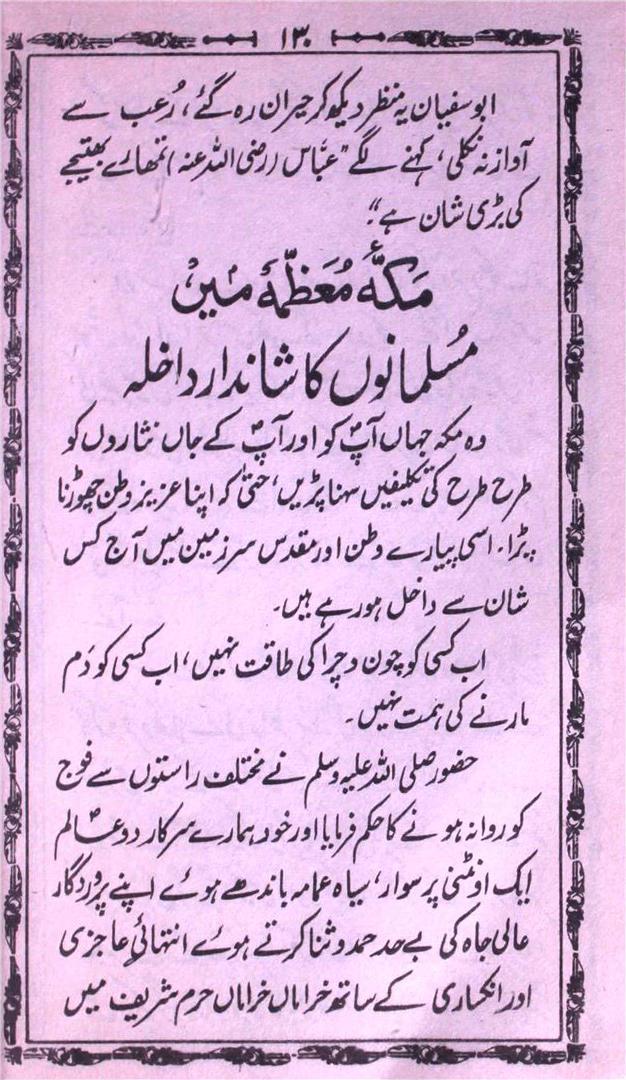 ۱۳۰
ابوسفیان یہ منظر دیکھ کر حیران رہ گئے، رُعب سے
آواز نہ نکلی، کہنے لگے "عبّاس (رضی اللہ عنہ) تمھارے بھتیجے
کی بڑی شان ہے"۔
مکّہ مُعظّمہ میں
مُسلمانوں کا شاندار داخلہ
وہ مکہ جہاں آپؐ کو اور آپؐ کے جاں نثاروں کو
طرح طرح کی تکلیفیں سہنا پڑیں، حتیٰ کہ اپنا عزیز وطن چھوڑنا
پڑا۔ اسی پیارے وطن اور مقدس سرزمین میں آج کس
شان سے داخل ہو رہے ہیں۔
اب کسی کو چون و چرا کی طاقت نہیں، اب کسی کو دَم
مارنے کی ہمت نہیں۔
حضور صلی اللہ علیہ وسلم نے مختلف راستوں سے فوج
کو روانہ ہونے کا حکم فرمایا اور خود ہمارے سرکار دو عالمؐ
ایک اونٹنی پر سوار، سیاہ عمامہ باندھے ہوئے اپنے پروردگار
عالی جاہ کی بے حد حمد و ثنا کرتے ہوئے انتہائی عاجزی
اور انکساری کے ساتھ خراماں خراماں حرم شریف میں